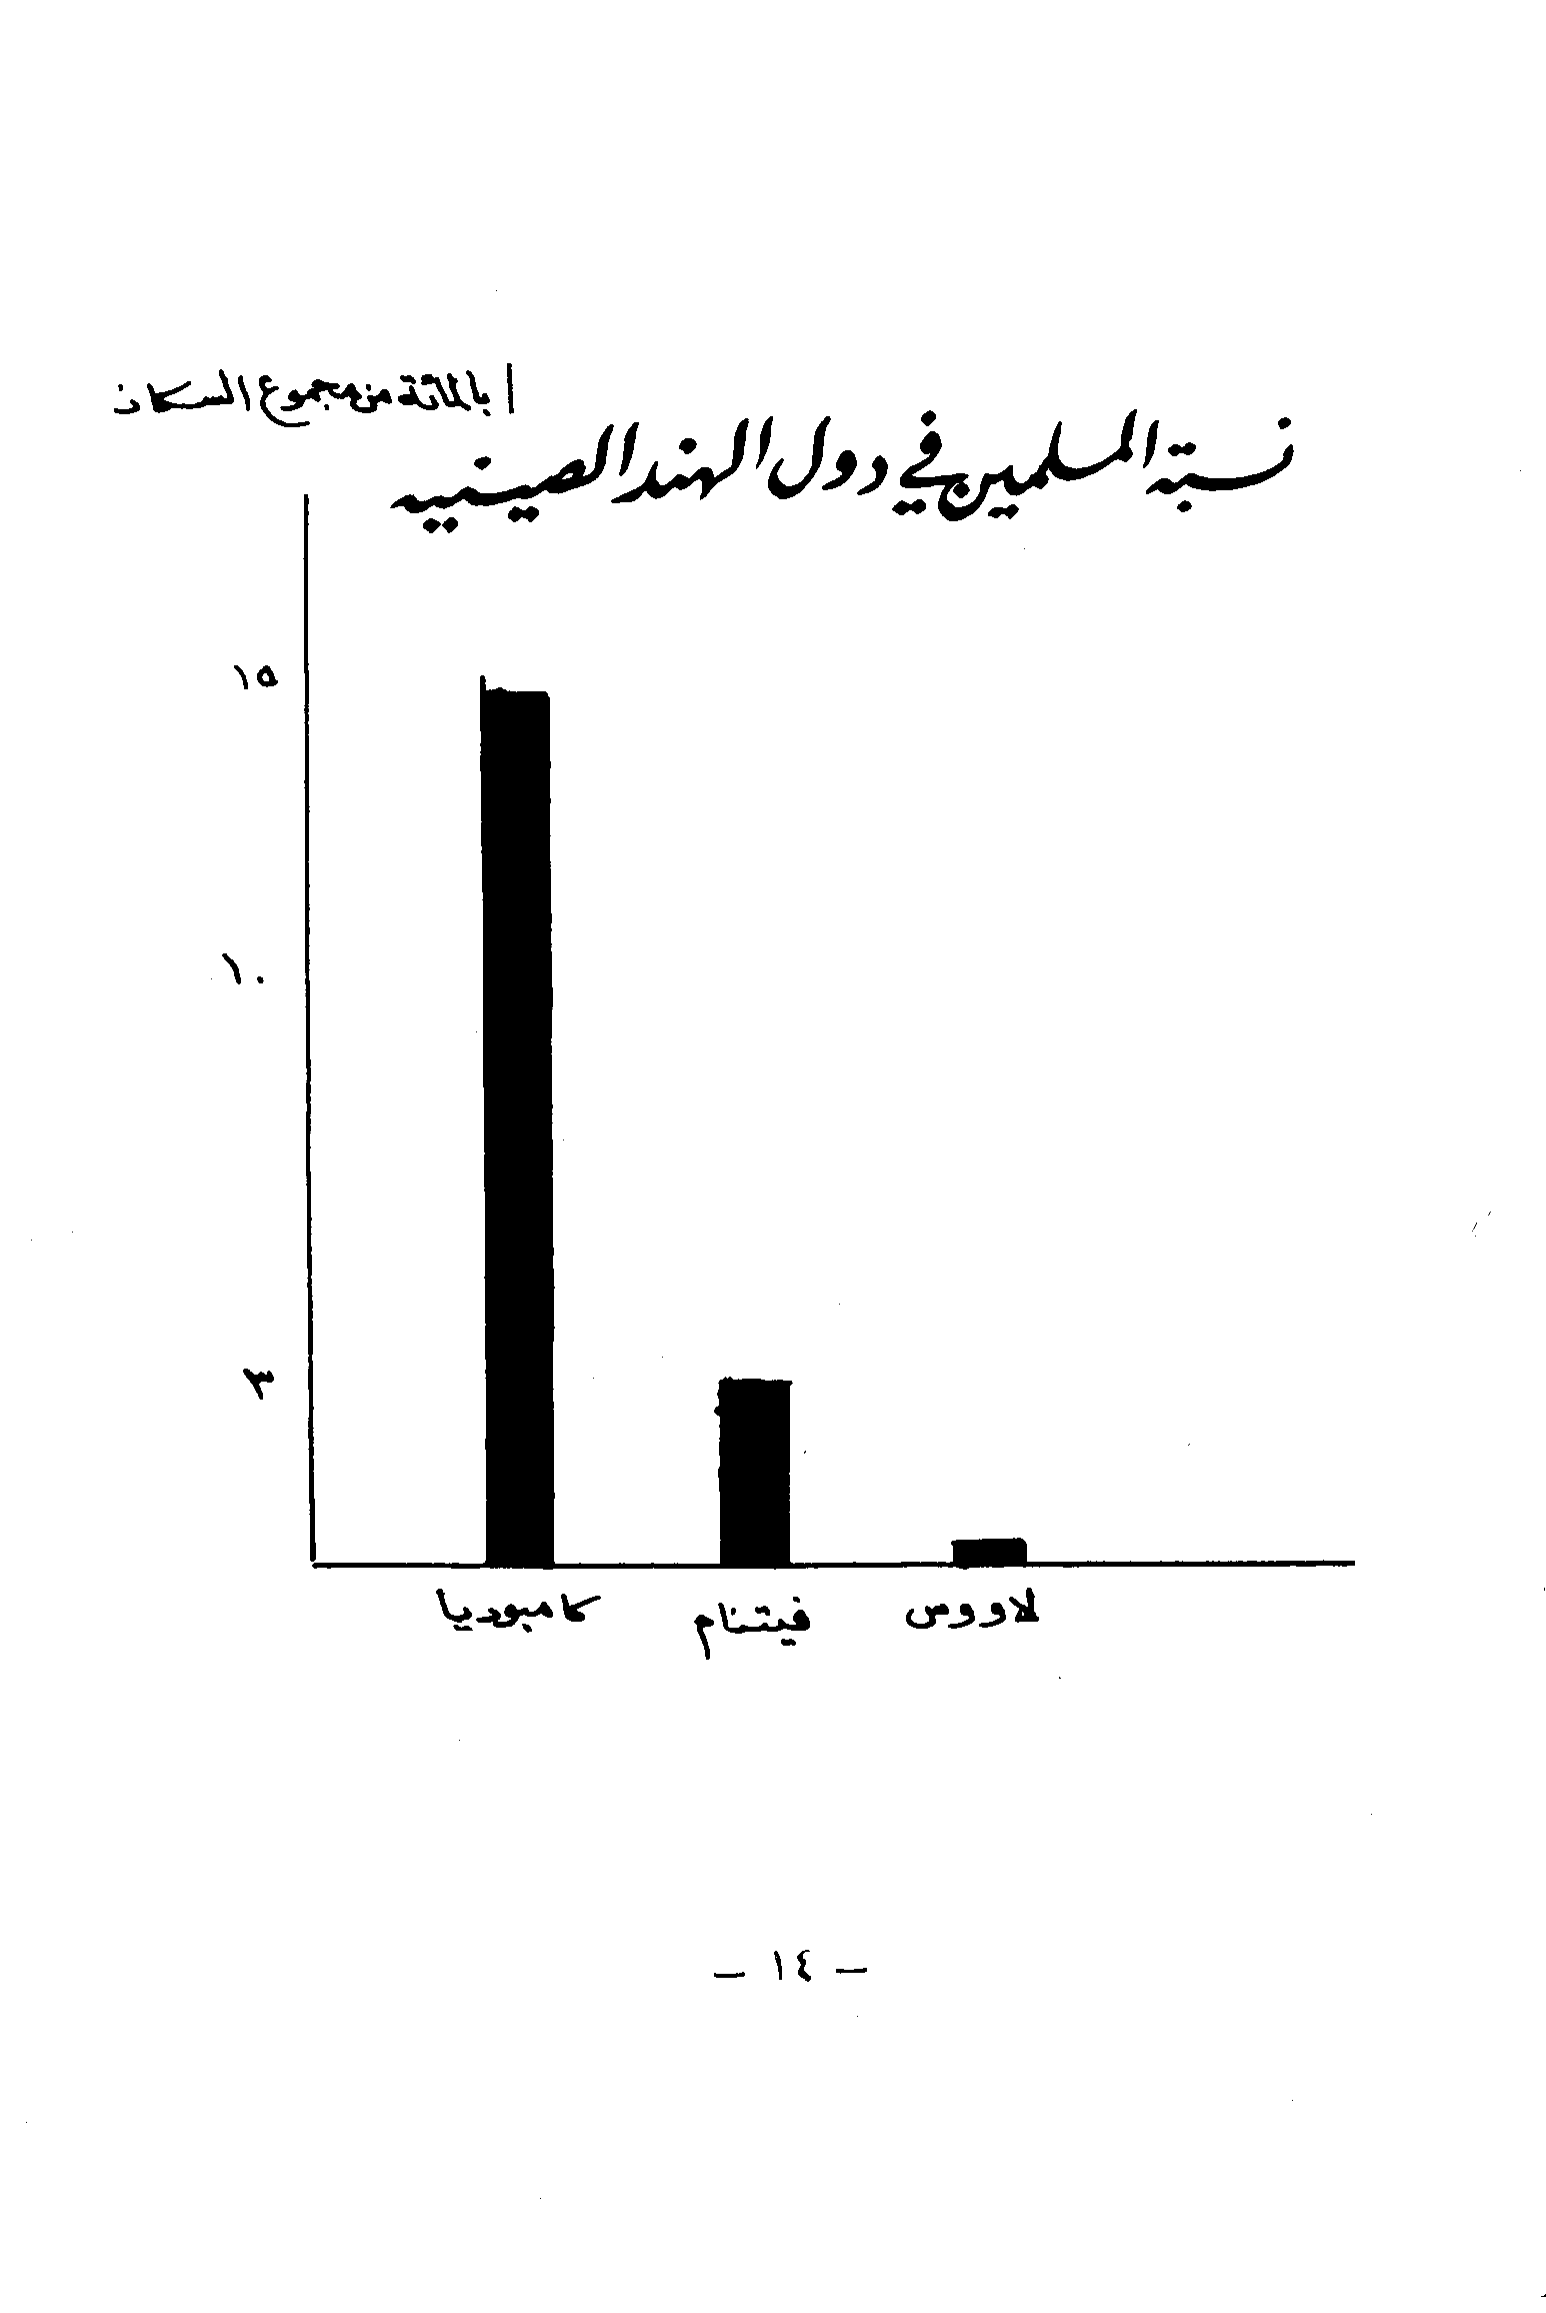 ا بالمائة من مجموع السكان
نسبة المسلمين في دول الهند الصينيه
١٥
١٠
٣
كامبوديا فيتنام لاووس
– ١٤ –